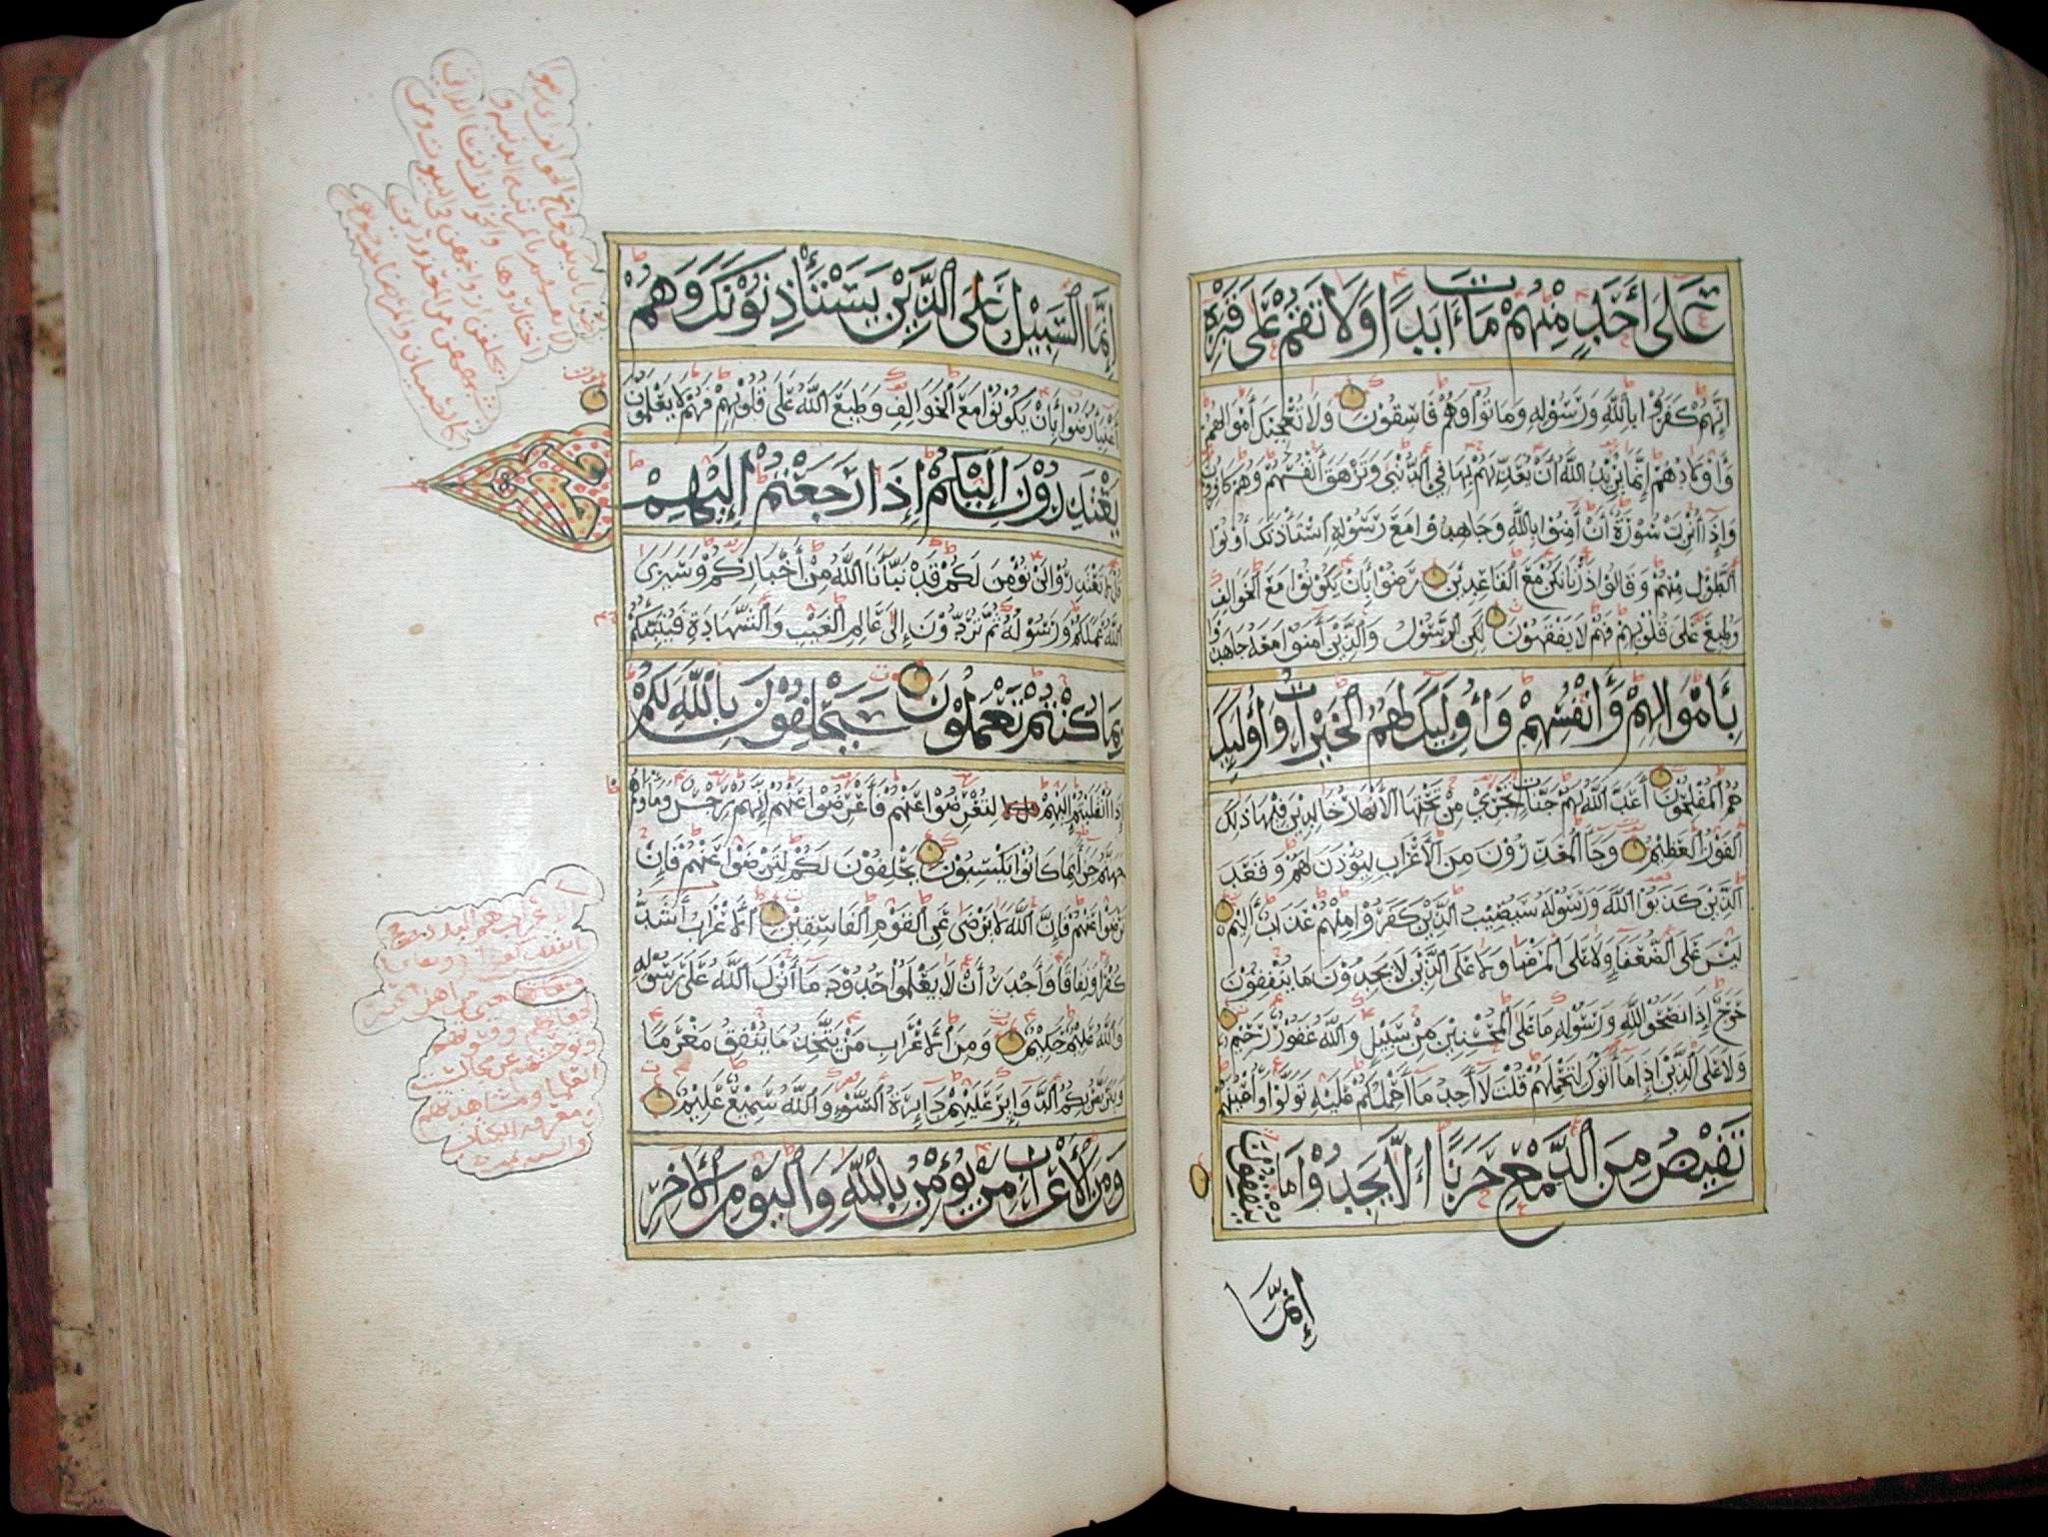 عَلَىٰ أَحَدٍ مِنْهُمْ مَاتَ أَبَدًا وَلَا تَقُمْ عَلَىٰ قَبْرِهِ
إِنَّهُمْ كَفَرُوا بِاللَّهِ وَرَسُولِهِ وَمَاتُوا وَهُمْ فَاسِقُونَ وَلَا تُعْجِبْكَ أَمْوَالُهُمْ
وَأَوْلَادُهُمْ إِنَّمَا يُرِيدُ اللَّهُ أَنْ يُعَذِّبَهُمْ بِهَا فِي الدُّنْيَا وَتَزْهَقَ أَنْفُسُهُمْ وَهُمْ كَافِرُونَ
وَإِذَا أُنْزِلَتْ سُورَةٌ أَنْ آمِنُوا بِاللَّهِ وَجَاهِدُوا مَعَ رَسُولِهِ اسْتَأْذَنَكَ أُولُوا
الطَّوْلِ مِنْهُمْ وَقَالُوا ذَرْنَا نَكُنْ مَعَ الْقَاعِدِينَ رَضُوا بِأَنْ يَكُونُوا مَعَ الْخَوَالِفِ
وَطُبِعَ عَلَىٰ قُلُوبِهِمْ فَهُمْ لَا يَفْقَهُونَ لَٰكِنِ الرَّسُولُ وَالَّذِينَ آمَنُوا مَعَهُ جَاهَدُوا
بِأَمْوَالِهِمْ وَأَنْفُسِهِمْ وَأُولَٰئِكَ لَهُمُ الْخَيْرَاتُ وَأُولَٰئِكَ
هُمُ الْمُفْلِحُونَ أَعَدَّ اللَّهُ لَهُمْ جَنَّاتٍ تَجْرِي مِنْ تَحْتِهَا الْأَنْهَارُ خَالِدِينَ فِيهَا ذَٰلِكَ
الْفَوْزُ الْعَظِيمُ وَجَاءَ الْمُعَذِّرُونَ مِنَ الْأَعْرَابِ لِيُؤْذَنَ لَهُمْ وَقَعَدَ
الَّذِينَ كَذَبُوا اللَّهَ وَرَسُولَهُ سَيُصِيبُ الَّذِينَ كَفَرُوا مِنْهُمْ عَذَابٌ أَلِيمٌ
لَيْسَ عَلَى الضُّعَفَاءِ وَلَا عَلَى الْمَرْضَىٰ وَلَا عَلَى الَّذِينَ لَا يَجِدُونَ مَا يُنْفِقُونَ
حَرَجٌ إِذَا نَصَحُوا لِلَّهِ وَرَسُولِهِ مَا عَلَى الْمُحْسِنِينَ مِنْ سَبِيلٍ وَاللَّهُ غَفُورٌ رَحِيمٌ
وَلَا عَلَى الَّذِينَ إِذَا مَا أَتَوْكَ لِتَحْمِلَهُمْ قُلْتَ لَا أَجِدُ مَا أَحْمِلُكُمْ عَلَيْهِ تَوَلَّوْا وَأَعْيُنُهُمْ
تَفِيضُ مِنَ الدَّمْعِ حَزَنًا أَلَّا يَجِدُوا مَا يُنْفِقُونَ
إِنَّمَا
إِنَّمَا السَّبِيلُ عَلَى الَّذِينَ يَسْتَأْذِنُونَكَ وَهُمْ
أَغْنِيَاءُ رَضُوا بِأَنْ يَكُونُوا مَعَ الْخَوَالِفِ وَطَبَعَ اللَّهُ عَلَىٰ قُلُوبِهِمْ فَهُمْ لَا يَعْلَمُونَ
يَعْتَذِرُونَ إِلَيْكُمْ إِذَا رَجَعْتُمْ إِلَيْهِمْ
قُلْ لَا تَعْتَذِرُوا لَنْ نُؤْمِنَ لَكُمْ قَدْ نَبَّأَنَا اللَّهُ مِنْ أَخْبَارِكُمْ وَسَيَرَى
اللَّهُ عَمَلَكُمْ وَرَسُولُهُ ثُمَّ تُرَدُّونَ إِلَىٰ عَالِمِ الْغَيْبِ وَالشَّهَادَةِ فَيُنَبِّئُكُمْ
بِمَا كُنْتُمْ تَعْمَلُونَ سَيَحْلِفُونَ بِاللَّهِ لَكُمْ
إِذَا انْقَلَبْتُمْ إِلَيْهِمْ لِتُعْرِضُوا عَنْهُمْ فَأَعْرِضُوا عَنْهُمْ إِنَّهُمْ رِجْسٌ وَمَأْوَاهُمْ
جَهَنَّمُ جَزَاءً بِمَا كَانُوا يَكْسِبُونَ يَحْلِفُونَ لَكُمْ لِتَرْضَوْا عَنْهُمْ فَإِنْ
تَرْضَوْا عَنْهُمْ فَإِنَّ اللَّهَ لَا يَرْضَىٰ عَنِ الْقَوْمِ الْفَاسِقِينَ الْأَعْرَابُ أَشَدُّ
كُفْرًا وَنِفَاقًا وَأَجْدَرُ أَنْ لَا يَعْلَمُوا حُدُودَ مَا أَنْزَلَ اللَّهُ عَلَىٰ رَسُولِهِ
وَاللَّهُ عَلِيمٌ حَكِيمٌ وَمِنَ الْأَعْرَابِ مَنْ يَتَّخِذُ مَا يُنْفِقُ مَغْرَمًا
وَيَتَرَبَّصُ بِكُمُ الدَّوَائِرَ عَلَيْهِمْ دَائِرَةُ السَّوْءِ وَاللَّهُ سَمِيعٌ عَلِيمٌ
وَمِنَ الْأَعْرَابِ مَنْ يُؤْمِنُ بِاللَّهِ وَالْيَوْمِ الْآخِرِ